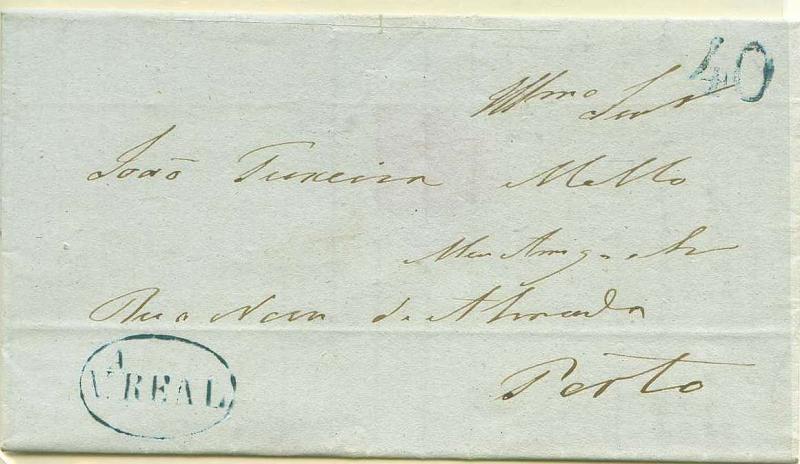 40
Illmo Snr
João Teixeira Mello
Meu Amigo
Rua Nova de Almada
Porto
Vª REAL